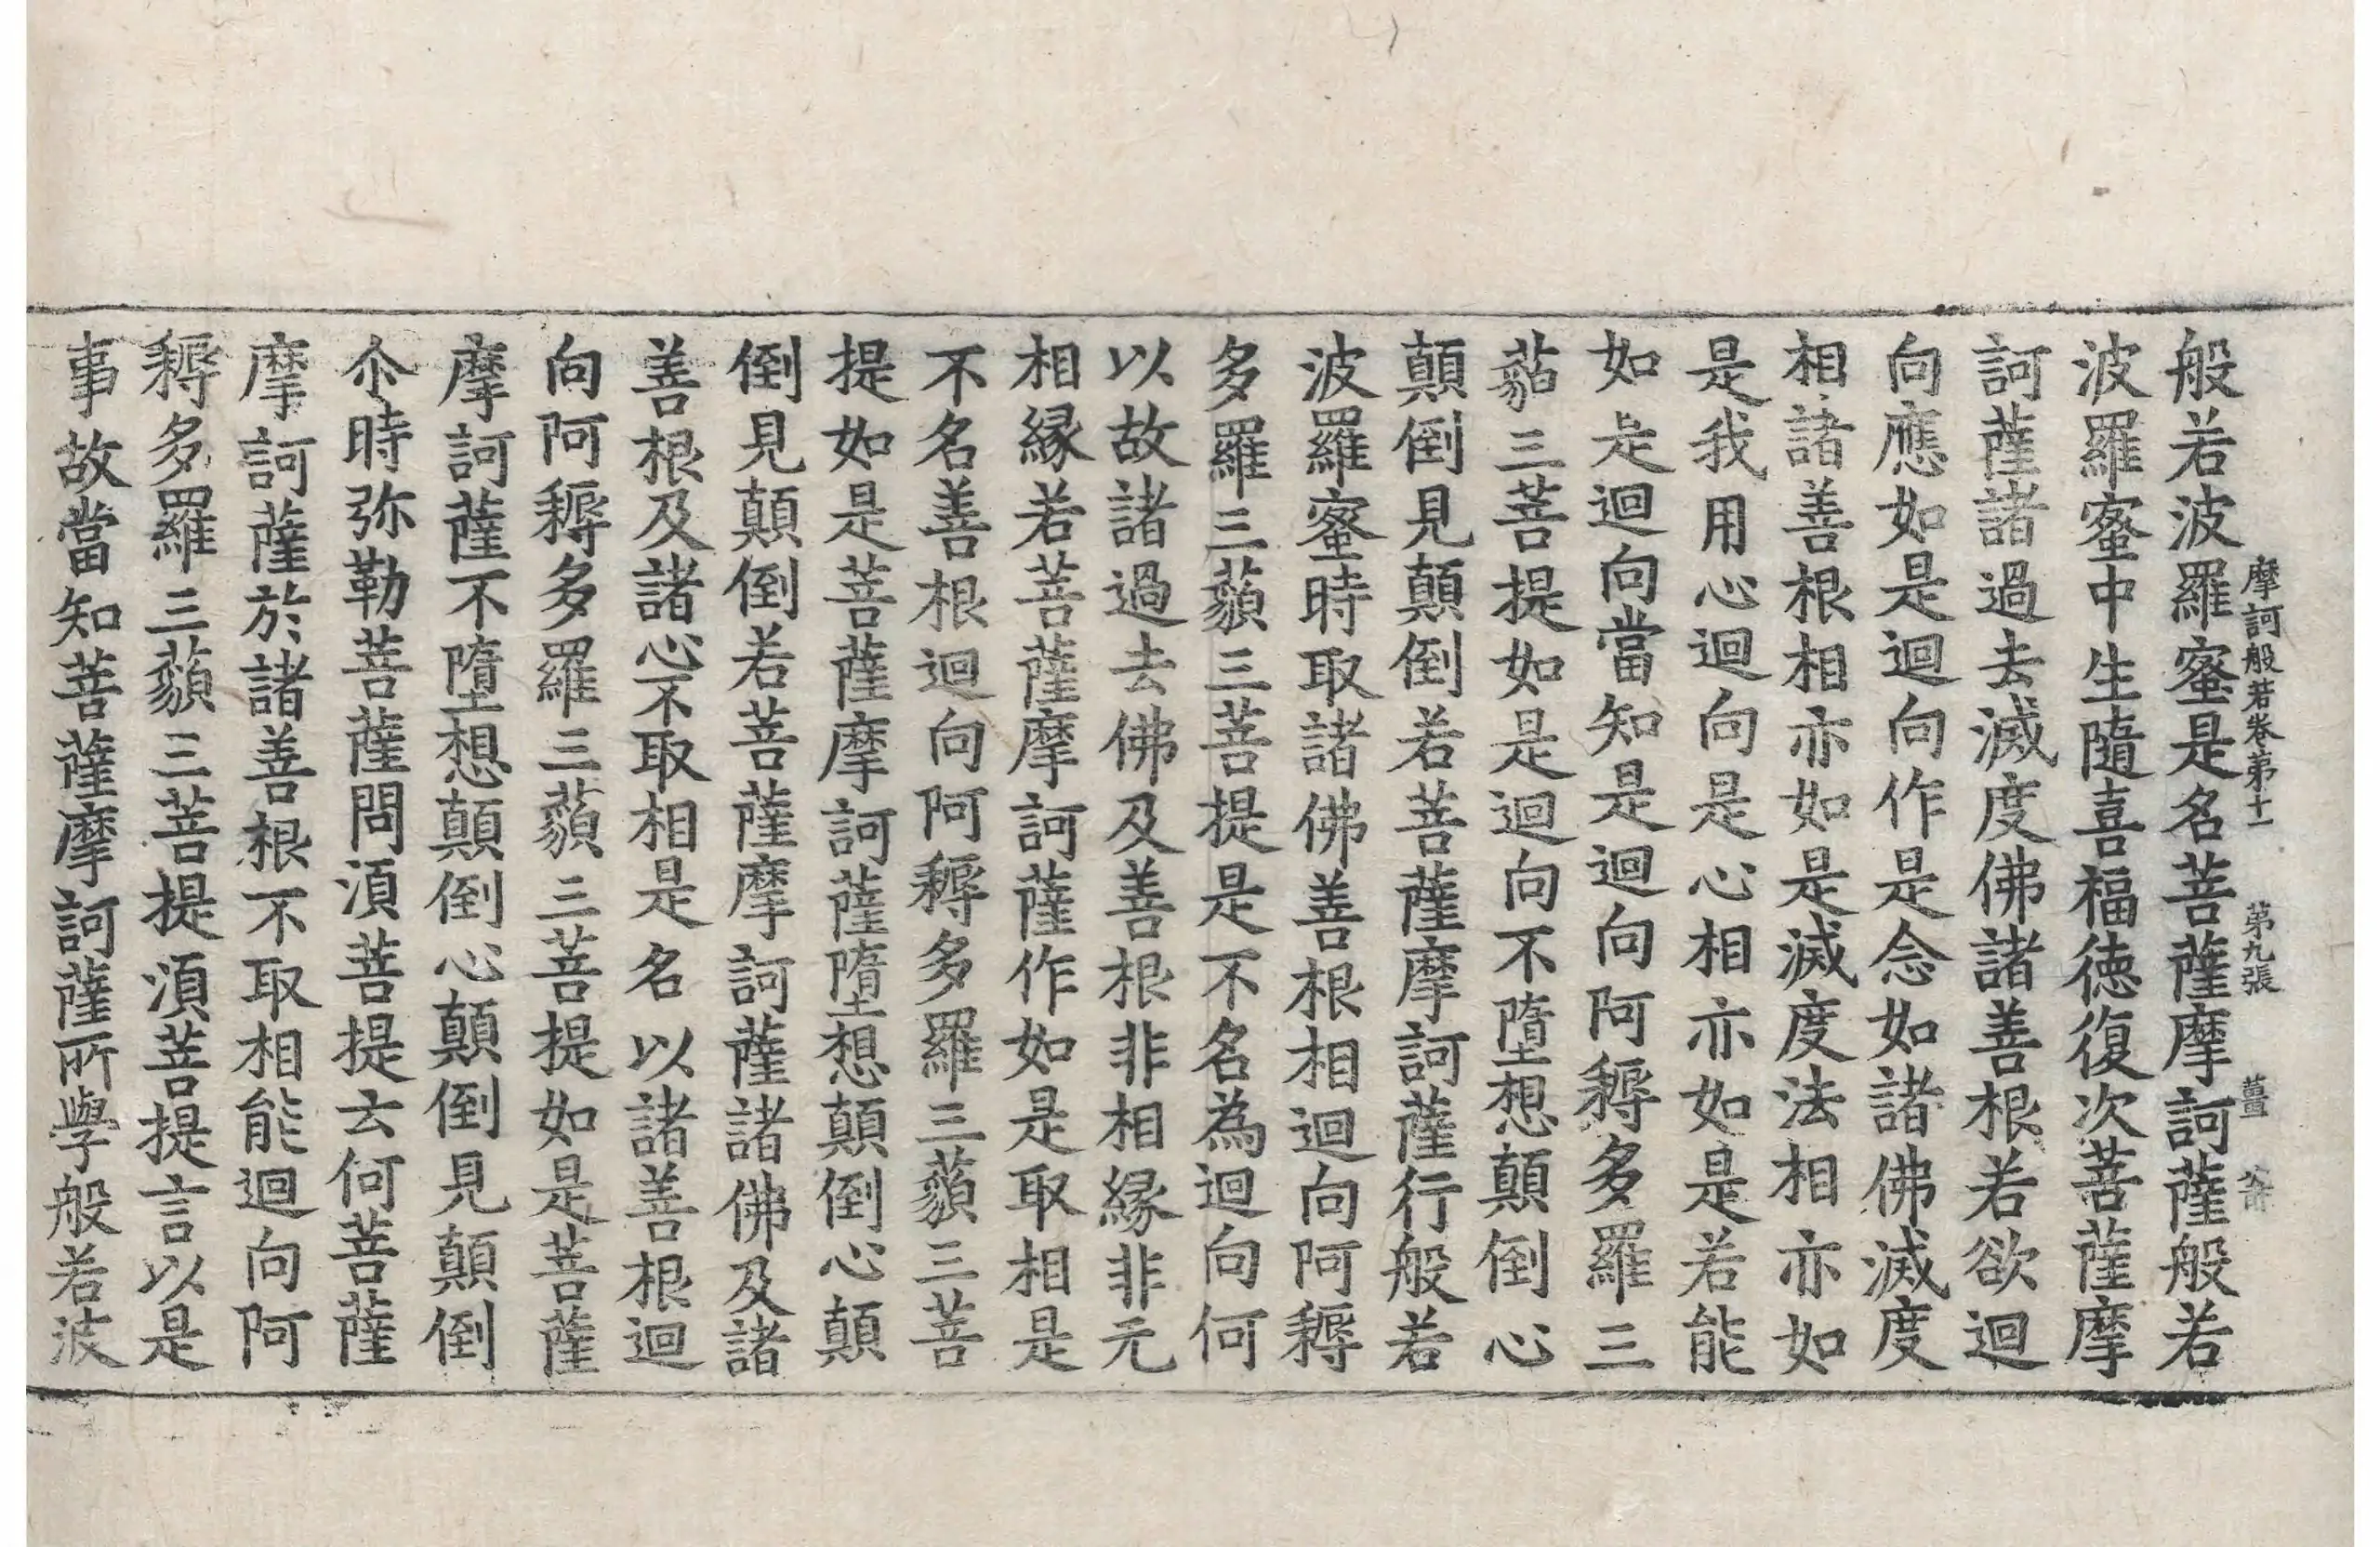 摩訶般若卷第十一 第九張 薑
般若波羅蜜是名菩薩摩訶薩般若
波羅蜜中生隨喜福德復次菩薩摩
訶薩諸過去滅度佛諸善根若欲迴
向應如是迴向作是念如諸佛滅度
相諸善根相亦如是滅度法相亦如
是我用心迴向是心相亦如是若能
如是迴向當知是迴向阿耨多羅三
藐三菩提如是迴向不墮想顛倒心
顛倒見顛倒若菩薩摩訶薩行般若
波羅蜜時取諸佛善根相迴向阿耨
多羅三藐三菩提是不名為迴向何
以故諸過去佛及善根非相緣非无
相緣若菩薩摩訶薩作如是取相是
不名善根迴向阿耨多羅三藐三菩
提如是菩薩摩訶薩墮想顛倒心顛
倒見顛倒若菩薩摩訶薩諸佛及諸
善根及諸心不取相是名以諸善根迴
向阿耨多羅三藐三菩提如是菩薩
摩訶薩不墮想顛倒心顛倒見顛倒
尒時弥勒菩薩問湏菩提云何菩薩
摩訶薩於諸善根不取相能迴向阿
耨多羅三藐三菩提湏菩提言以是
事故當知菩薩摩訶薩所學般若波